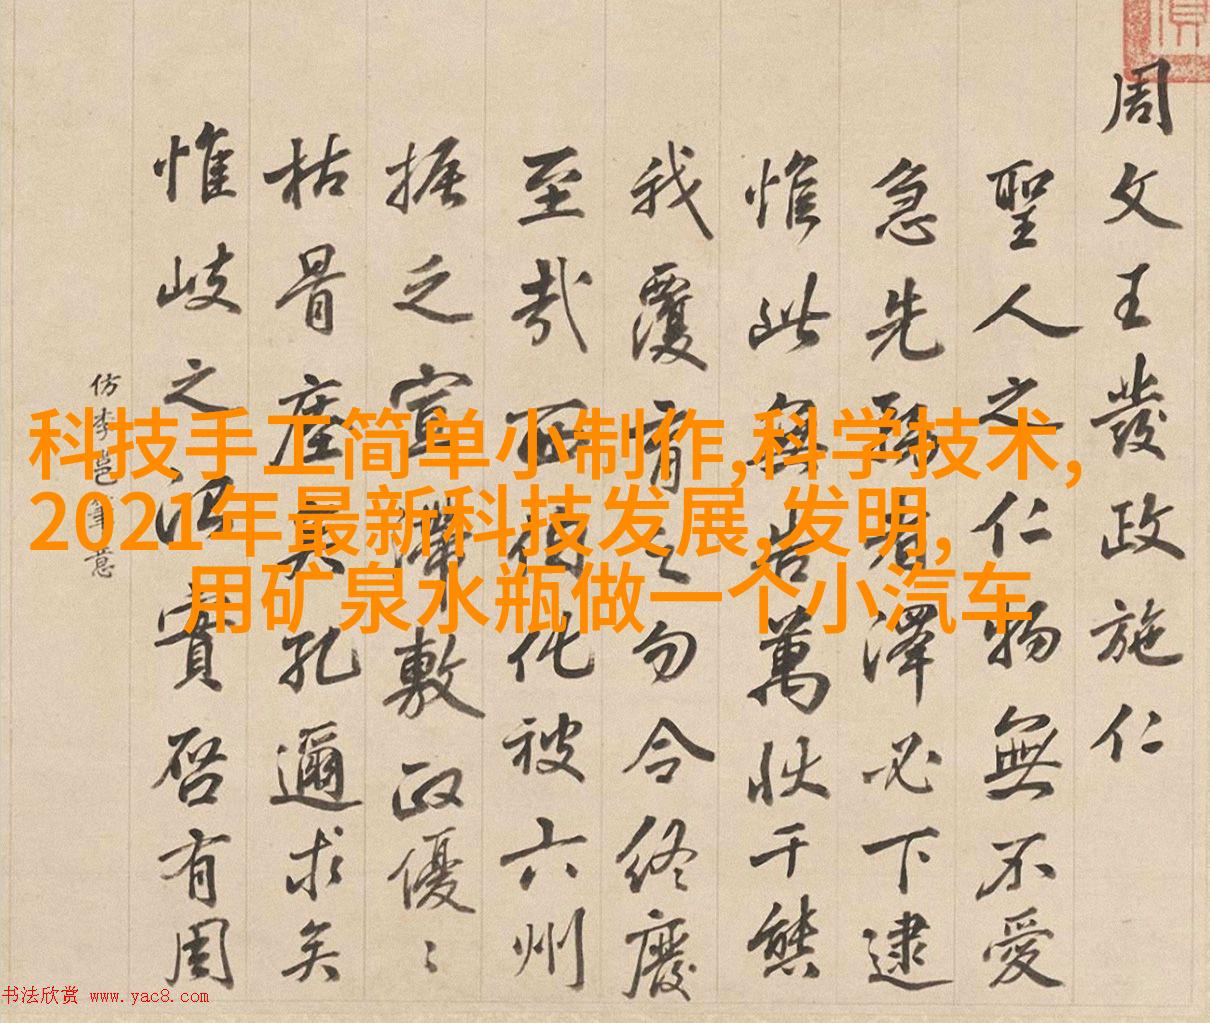 周文王發政施仁
聖人之仁物無不愛
急先者澤必下逮
惟此告萬狀千態
我覆育之勿令終廢
至哉西化被六州
振之宣敷政優〻
枯骨矣孔邇求矣
惟岐之實啓有周
仿李邕筆意
科技手工简单小制作,科学技术,
2021年最新科技发展,发明,
用矿泉水瓶做一个小汽车
书法欣赏 www.yac8.com